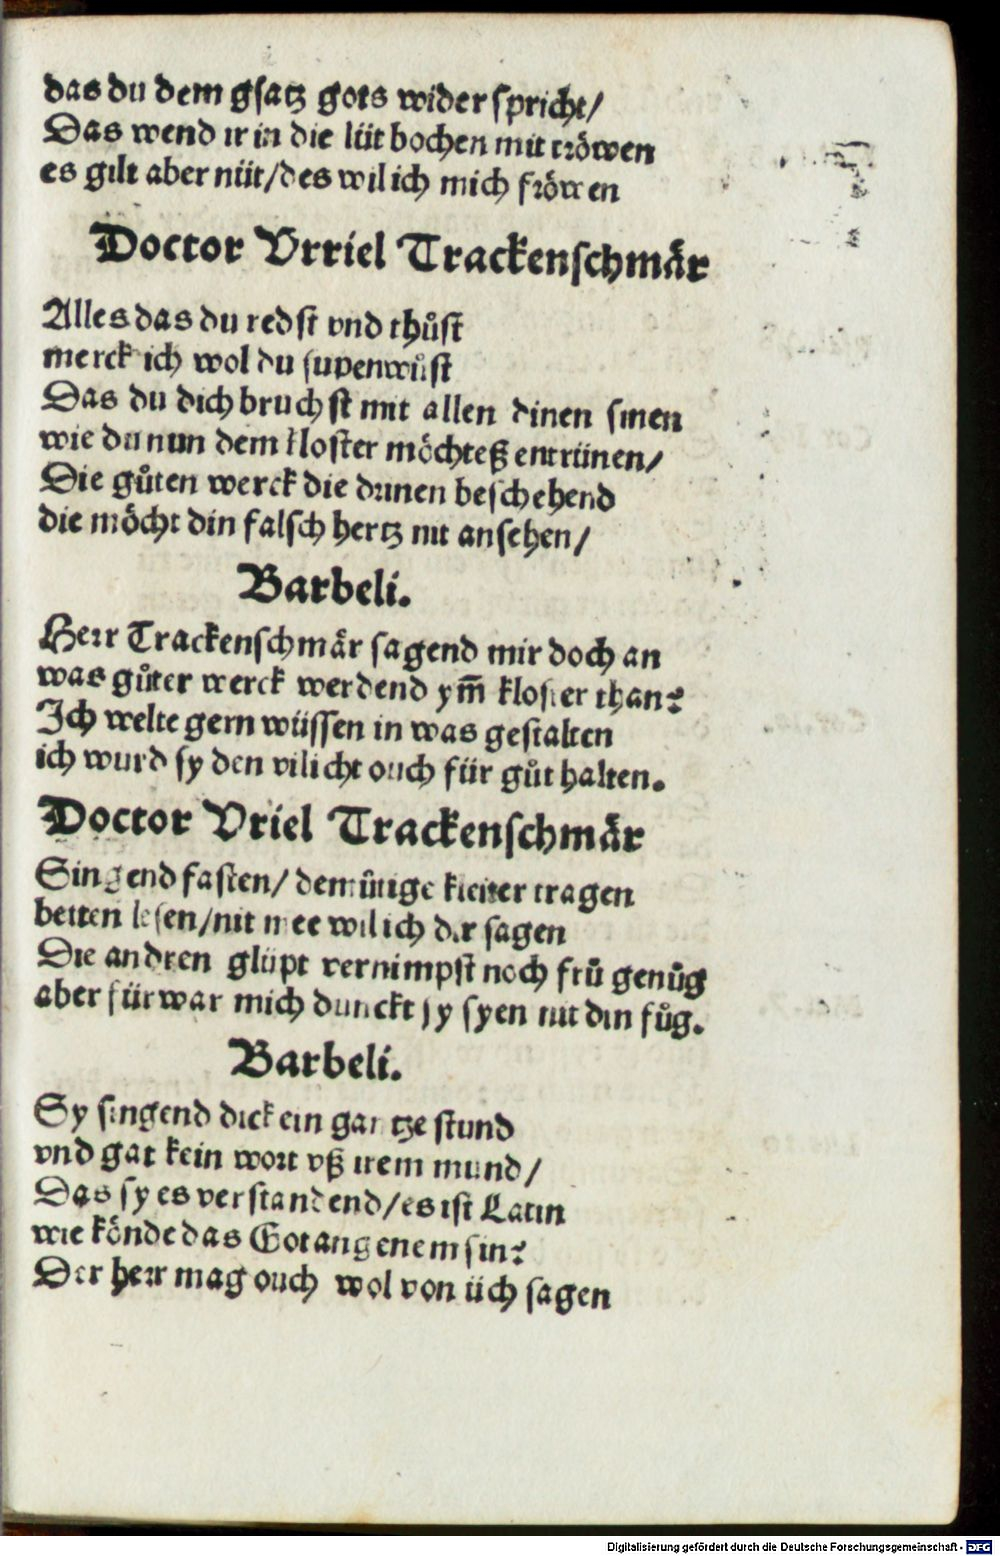 das du dem gsatz gots wider spricht/
Das wend ir in die lüt bochen mit tröwen
es gilt aber nüt/des wil ich mich fröwen
Doctor Vrriel Trackenschmår
Alles das du redst vnd thůst
merck ich wol du supenwůst
Das du dich bruchst mit allen dinen sinen
wie du nun dem kloster möchteß entrünen/
Die gůten werck die drinen beschehend
die möcht din falsch hertz nit ansehen/
Barbeli.
Herr Trackenschmår sagend mir doch an
was gůter werck werdend ym̃ kloster than?
Ich welte gern wüssen in was gestalten
ich wurd sy den vilicht ouch für gůt halten.
Doctor Vriel Trackenschmår
Singend fasten/ demůtige kleiter tragen
betten lesen/nit mee wil ich dir sagen
Die andren glüpt vernimpst noch frů genůg
aber fürwar mich dunckt sy syen nit din fůg.
Barbeli.
Sy singend dick ein gantze stund
vnd gat kein wort vß irem mund/
Das sy es verstandend/es ist Latin
wie könde das Got angenem sin?
Der herr mag ouch wol von üch sagen
Digitalisierung gefördert durch die Deutsche Forschungsgemeinschaft - DFG